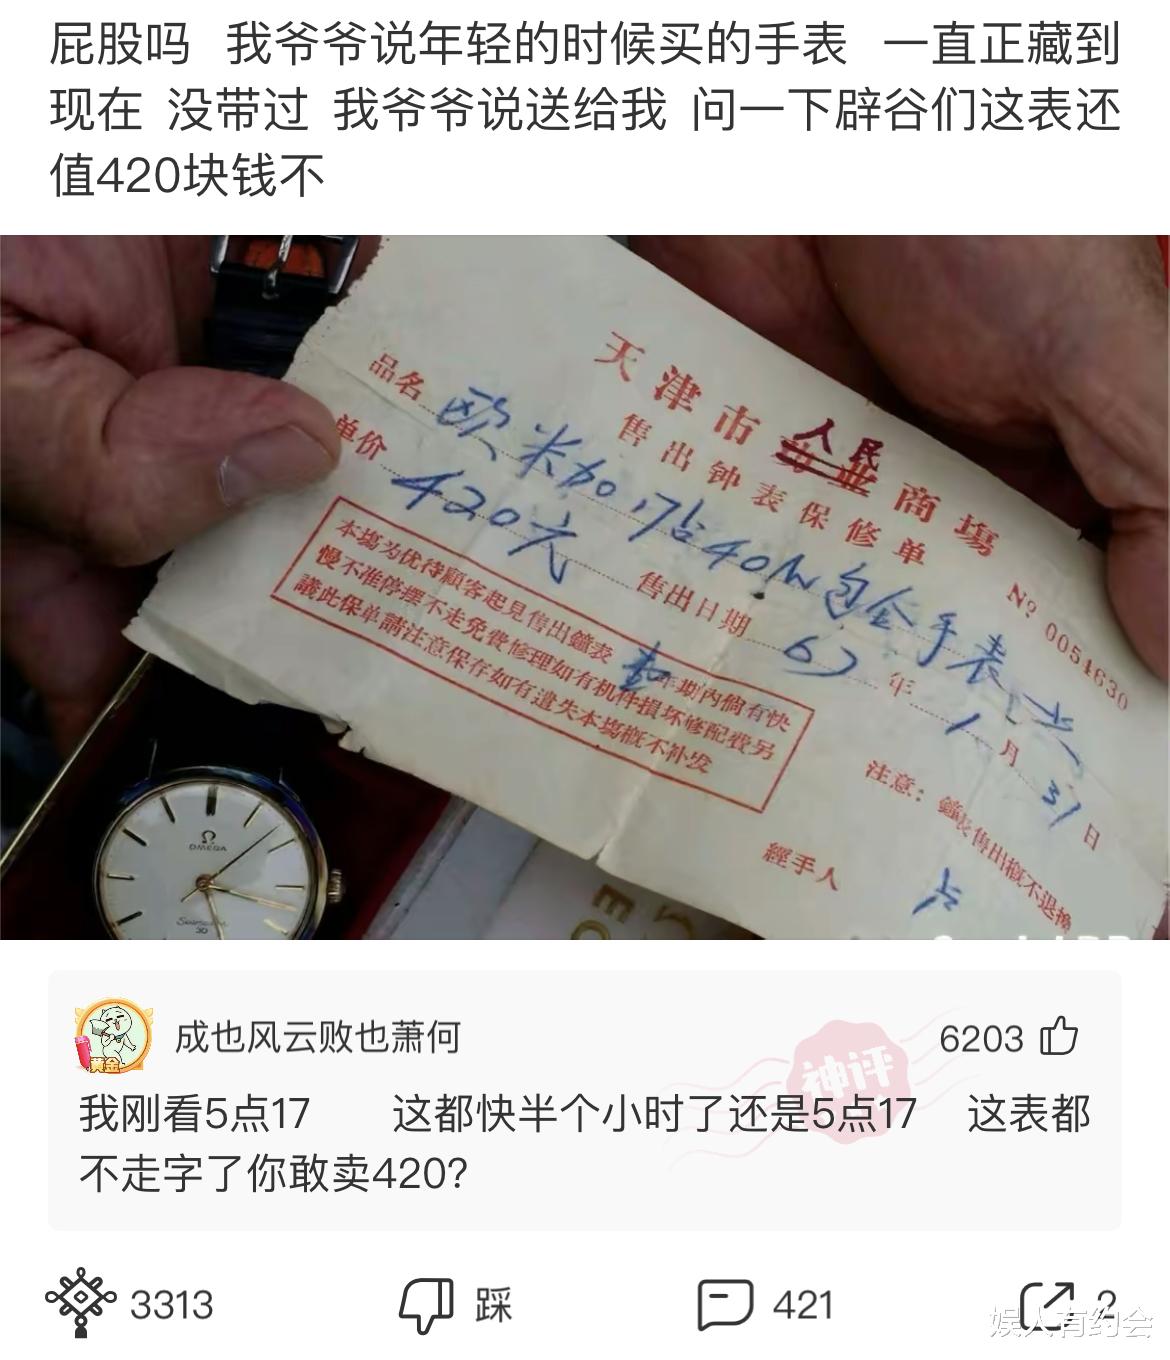 屁股吗 我爷爷说年轻的时候买的手表 一直正藏到
现在 没带过 我爷爷说送给我 问一下辟谷们这表还
值420块钱不
天津市人民商場
售出钟表保修单
No 0054630
品名 欧米加,17钻40M包金手表
单价 420元
售出日期 67年1月31日
本塲为优待顧客起見售出鐘表 年期內倘有快
慢不准停摆不走免費修理如有机件損坏修配費另
議此保单請注意保存如有遺失本塲概不补发
注意：鐘表售出概不退換
經手人
OMEGA
成也风云败也萧何
6203
神评
黄金
我刚看5点17 这都快半个小时了还是5点17 这表都
不走字了你敢卖420?
3313
踩
421
2
娱人有约会